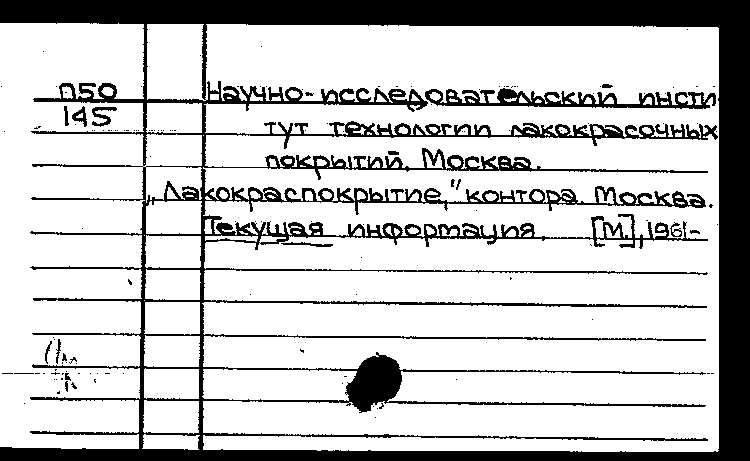 П50
145
Научно-исследовательский инсти
тут технологии лакокрасочных
покрытий. Москва.
„Лакокраспокрытие," контора. Москва.
Текущая информация. [М.], 1961-